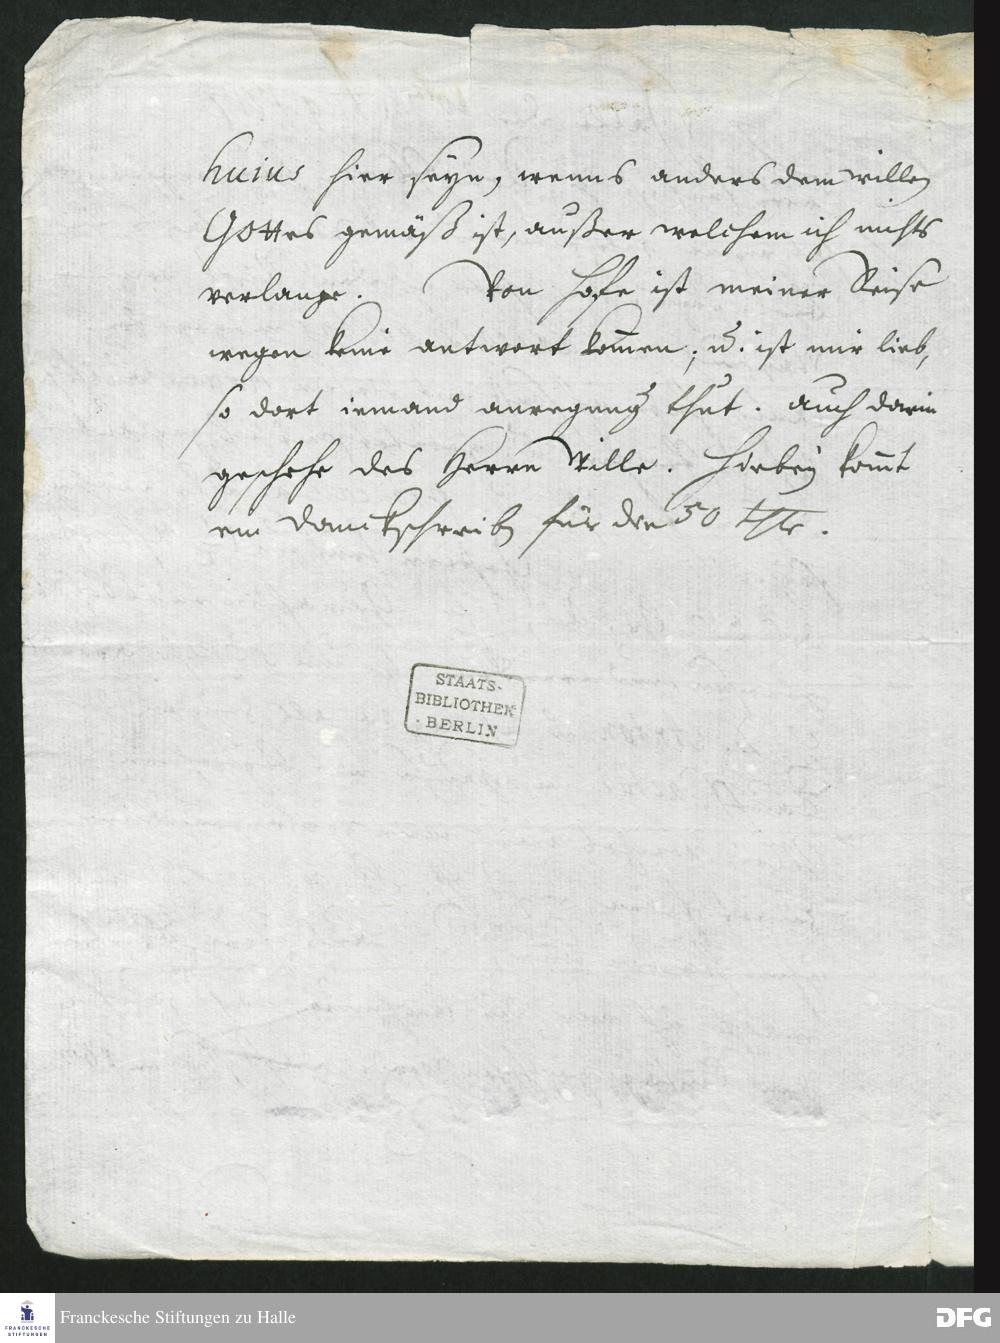 huius hier seyn, wenns anders dem willen
GOttes gemäß ist, außer welchem ich nichts
verlange. Von Hofe ist meiner Reise
wegen keine antwort kom̄en; u. ist mir lieb,
so dort iemand anregung thut. Auch darin
geschehe des Herrn Wille. Hiebey kom̄t
ein Danckschreiben für die 50 thlr.
STAATS-
BIBLIOTHEK
· BERLIN
FRANCKESCHE
STIFTUNGEN
Franckesche Stiftungen zu Halle
DFG